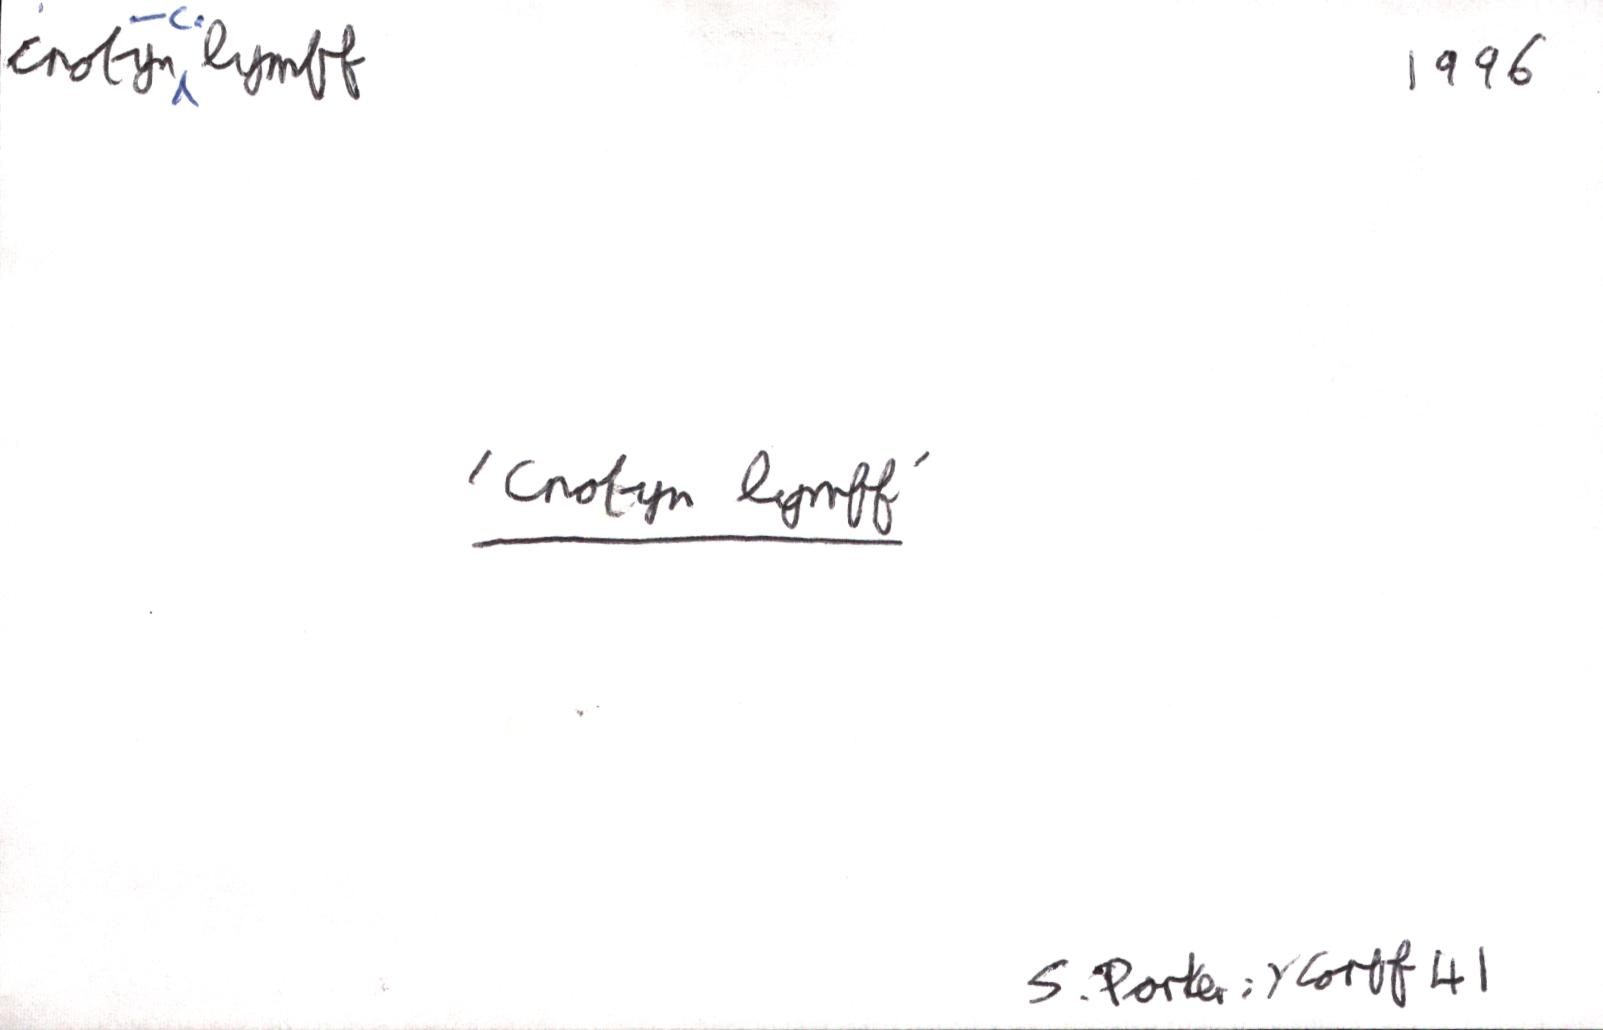 —c.
cnotyn lymff 1996
'Cnotyn lymff'
S. Porter: Y Corff 41